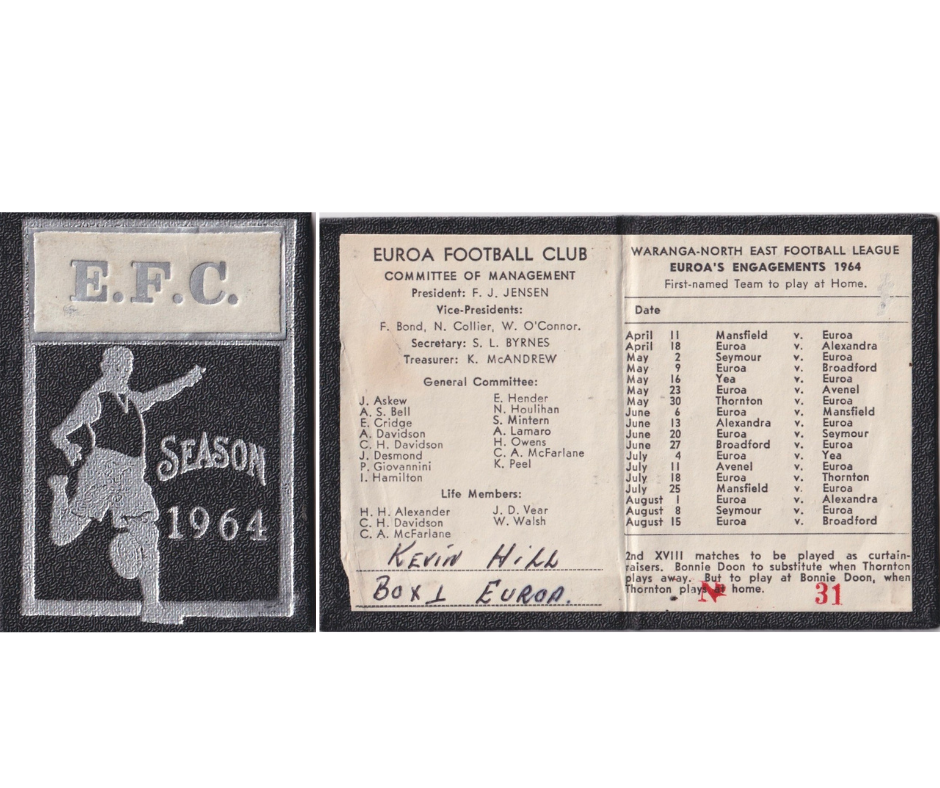 E.F.C.
SEASON
1964
EUROA FOOTBALL CLUB
COMMITTEE OF MANAGEMENT
President: F. J. JENSEN
Vice-Presidents:
F. Bond, N. Collier, W. O'Connor.
Secretary: S. L. BYRNES
Treasurer: K. McANDREW
General Committee:
J. Askew
A. S. Bell
E. Cridge
A. Davidson
C. H. Davidson
J. Desmond
P. Giovannini
I. Hamilton
E. Hender
N. Houlihan
S. Mintern
A. Lamaro
H. Owens
C. A. McFarlane
K. Peel
Life Members:
H. H. Alexander
C. H. Davidson
C. A. McFarlane
J. D. Vear
W. Walsh
KEVIN HILL
BOX 1 EUROA.
WARANGA-NORTH EAST FOOTBALL LEAGUE
EUROA'S ENGAGEMENTS 1964
First-named Team to play at Home.
Date
April 11 Mansfield v. Euroa
April 18 Euroa v. Alexandra
May 2 Seymour v. Euroa
May 9 Euroa v. Broadford
May 16 Yea v. Euroa
May 23 Euroa v. Avenel
May 30 Thornton v. Euroa
June 6 Euroa v. Mansfield
June 13 Alexandra v. Euroa
June 20 Euroa v. Seymour
June 27 Broadford v. Euroa
July 4 Euroa v. Yea
July 11 Avenel v. Euroa
July 18 Euroa v. Thornton
July 25 Mansfield v. Euroa
August 1 Euroa v. Alexandra
August 8 Seymour v. Euroa
August 15 Euroa v. Broadford
2nd XVIII matches to be played as curtain-
raisers. Bonnie Doon to substitute when Thornton
plays away. But to play at Bonnie Doon, when
Thornton plays at home.
No 31